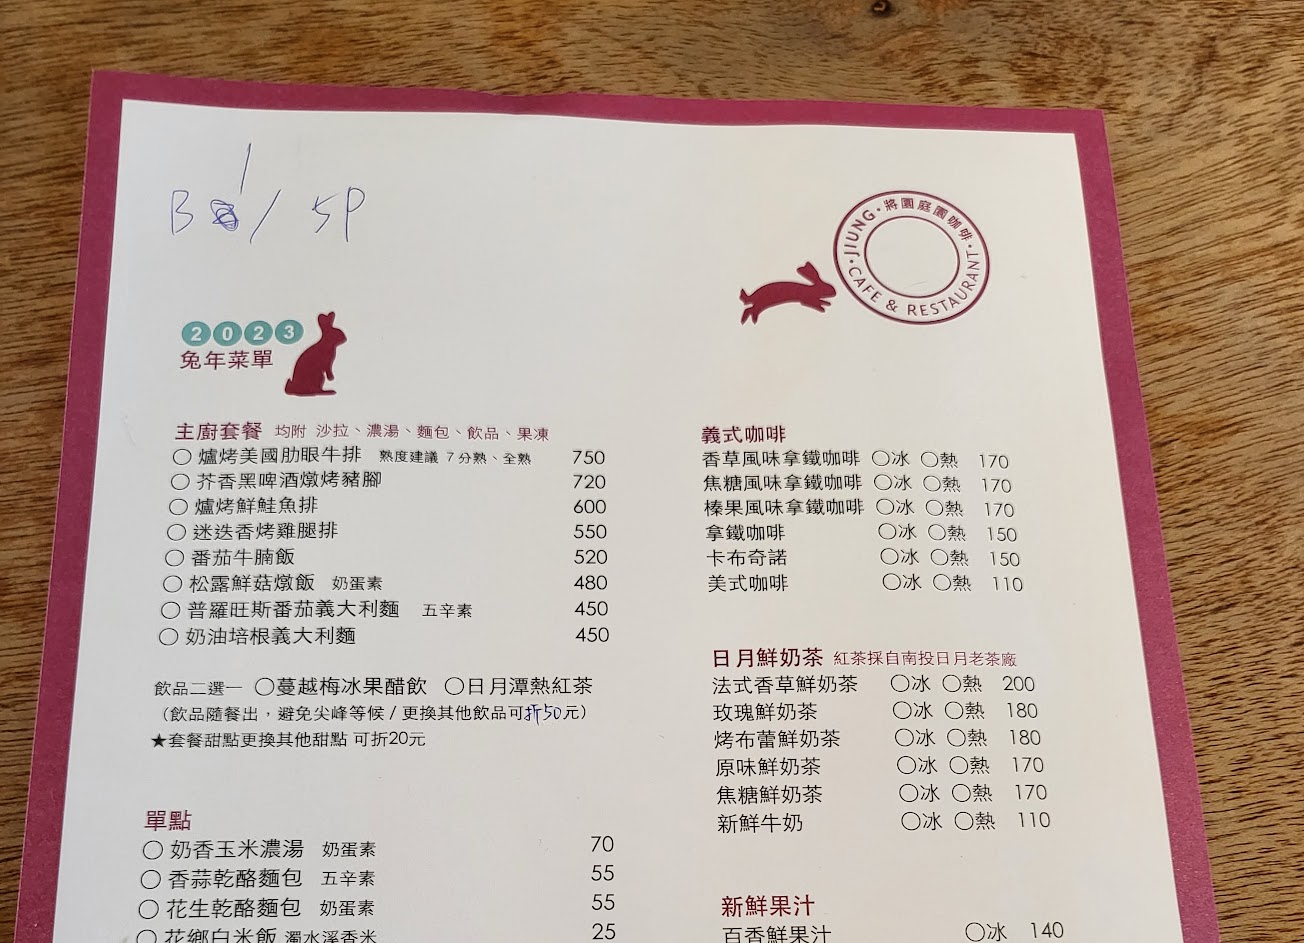 B1/ 5P
將園庭園咖啡
JIUNG
CAFE & RESTAURANT
2023
兔年菜單
主廚套餐 均附 沙拉、濃湯、麵包、飲品、果凍
爐烤美國肋眼牛排 熟度建議 7分熟、全熟 750
芥香黑啤酒燉烤豬腳 720
爐烤鮮鮭魚排 600
迷迭香烤雞腿排 550
番茄牛腩飯 520
松露鮮菇燉飯 奶蛋素 480
普羅旺斯番茄義大利麵 五辛素 450
奶油培根義大利麵 450
飲品二選一 ○蔓越梅冰果醋飲 ○日月潭熱紅茶
(飲品隨餐出，避免尖峰等候 / 更換其他飲品可折50元)
★套餐甜點更換其他甜點 可折20元
單點
○奶香玉米濃湯 奶蛋素 70
○香蒜乾酪麵包 五辛素 55
○花生乾酪麵包 奶蛋素 55
○花鄉白米飯 濁水溪香米 25
義式咖啡
香草風味拿鐵咖啡 ○冰 ○熱 170
焦糖風味拿鐵咖啡 ○冰 ○熱 170
榛果風味拿鐵咖啡 ○冰 ○熱 170
拿鐵咖啡 ○冰 ○熱 150
卡布奇諾 ○冰 ○熱 150
美式咖啡 ○冰 ○熱 110
日月鮮奶茶 紅茶採自南投日月老茶廠
法式香草鮮奶茶 ○冰 ○熱 200
玫瑰鮮奶茶 ○冰 ○熱 180
烤布蕾鮮奶茶 ○冰 ○熱 180
原味鮮奶茶 ○冰 ○熱 170
焦糖鮮奶茶 ○冰 ○熱 170
新鮮牛奶 ○冰 ○熱 110
新鮮果汁
百香鮮果汁 ○冰 140